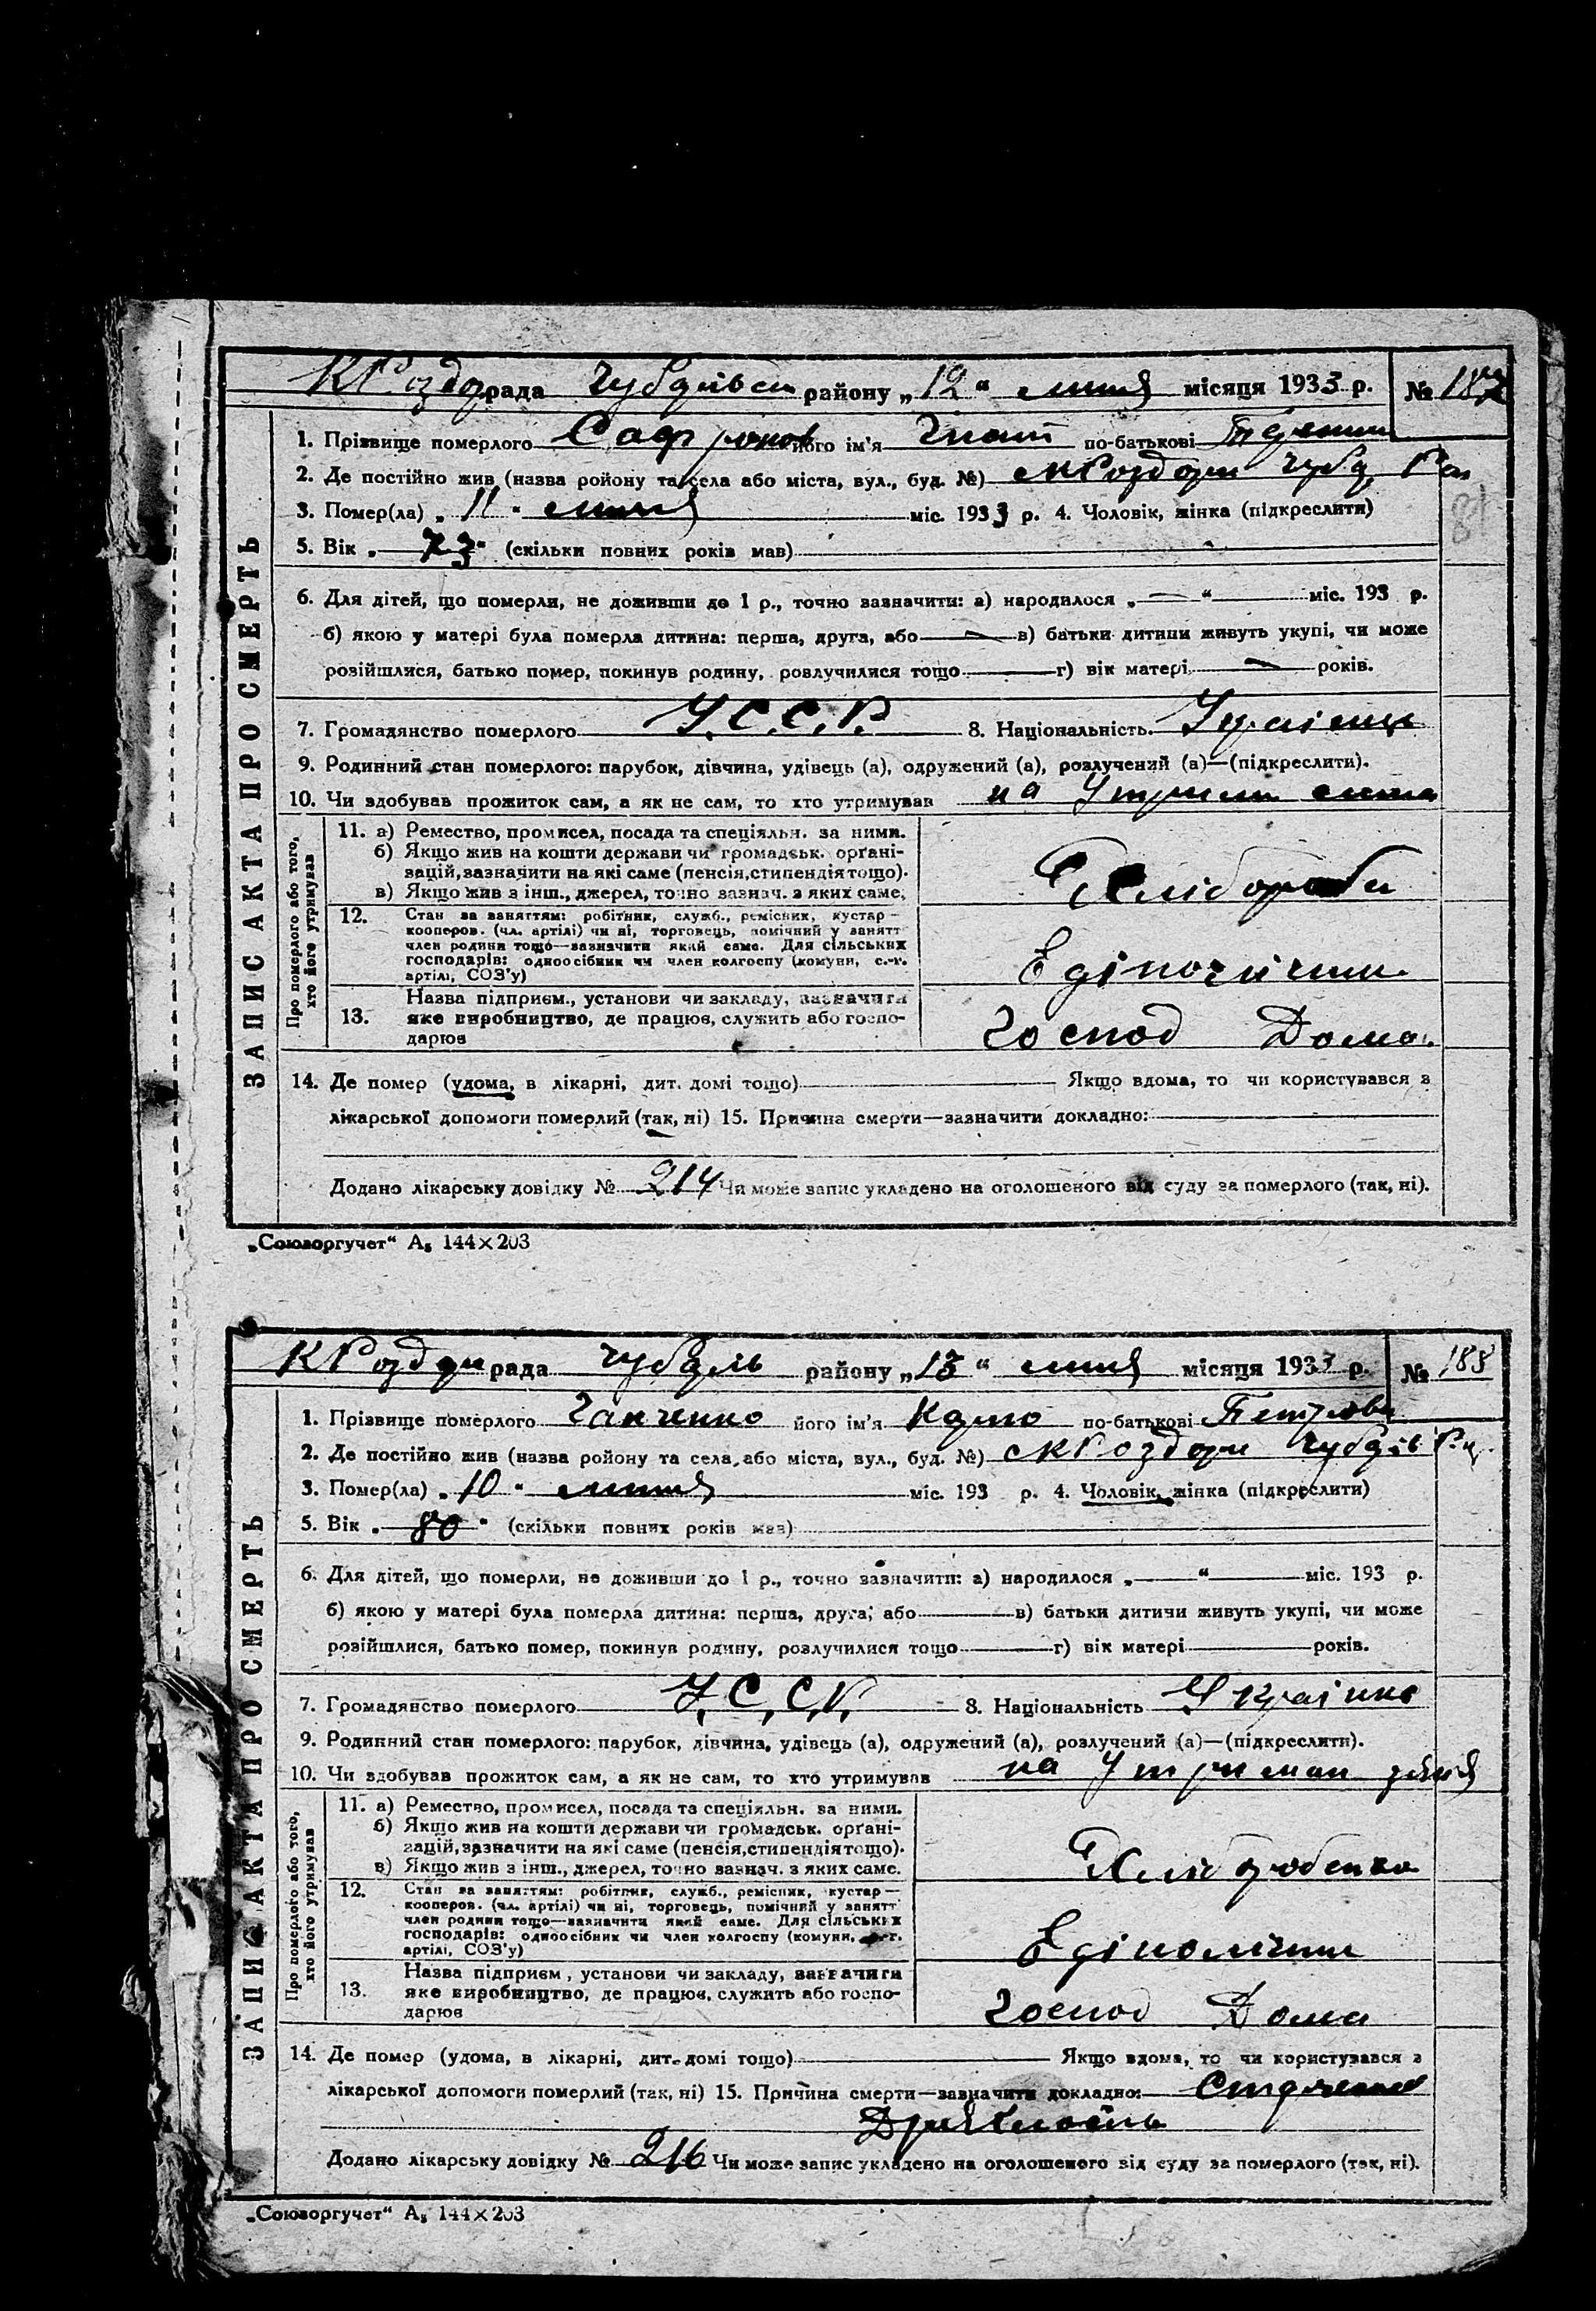 рада району „12“ липня місяця 1933 р. № 187
1. Прізвище померлого його ім'я Гнат по-батькові
2. Де постійно жив (назва ройону та села або міста, вул., буд. №)
3. Помер(ла) „11“ липня міс. 1933 р. 4. Чоловік, жінка (підкреслити)
5. Вік „73“ (скільки повних років мав)
6. Для дітей, що померли, не доживши до 1 р., точно зазначити: а) народилося „—“ міс. 193 р.
б) якою у матері була померла дитина: перша, друга, або — в) батьки дитини живуть укупі, чи може
розійшлися, батько помер, покинув родину, розлучилися тощо г) вік матері — років.
7. Громадянство померлого У.С.С.Р. 8. Національність
9. Родинний стан померлого: парубок, дівчина, удівець (а), одружений (а), розлучений (а)—(підкреслити).
10. Чи здобував прожиток сам, а як не сам, то хто утримував на
ЗАПИС АКТА ПРО СМЕРТЬ
Про померлого або того, хто його утримував
11. а) Ремество, промисел, посада та спеціяльн. за ними.
б) Якщо жив на кошти держави чи громадськ. орґані-
зацій, зазначити на які саме (пенсія, стипендія тощо).
в) Якщо жив з інш., джерел, точно зазнач. з яких саме.
12. Стан за заняттям: робітник, служб., ремісник, кустар—
кооперов. (чл. артілі) чи ні, торговець, помічний у занятт
член родини тощо—зазначити який саме. Для сільських
господарів: одноосібник чи член колгоспу (комуни, с.-г.
артілі, СОЗ'у)
Назва підприєм., установи чи закладу, зазначити
13. яке виробництво, де працює, служить або госпо-
дарює
Господ Дома
14. Де помер (удома, в лікарні, дит. домі тощо) Якщо вдома, то чи користувався з
лікарської допомоги померлий (так, ні) 15. Причина смерти—зазначити докладно:
Додано лікарську довідку № 214 Чи може запис укладено на оголошеного від суду за померлого (так, ні).
„Союзоргучет“ А₅ 144×203
рада району „13“ липня місяця 1933 р. № 188
1. Прізвище померлого Ганченко його ім'я по-батькові
2. Де постійно жив (назва ройону та села, або міста, вул., буд. №)
3. Помер(ла) „10“ липня міс. 193 р. 4. Чоловік, жінка (підкреслити)
5. Вік „80“ (скільки повних років мав)
6. Для дітей, що померли, не доживши до 1 р., точно зазначити: а) народилося „—“ міс. 193 р.
б) якою у матері була померла дитина: перша, друга, або в) батьки дитини живуть укупі, чи може
розійшлися, батько помер, покинув родину, розлучилися тощо г) вік матері років.
7. Громадянство померлого У.С.С.Р. 8. Національність
9. Родинний стан померлого: парубок, дівчина, удівець (а), одружений (а), розлучений (а)—(підкреслити).
10. Чи здобував прожиток сам, а як не сам, то хто утримував на Утриман
ЗАПИС АКТА ПРО СМЕРТЬ
Про померлого або того, хто його утримував
11. а) Ремество, промисел, посада та спеціяльн. за ними.
б) Якщо жив на кошти держави чи громадськ. орґані-
зацій, зазначити на які саме (пенсія, стипендія тощо).
в) Якщо жив з інш., джерел, точно зазнач. з яких саме.
12. Стан за заняттям: робітник, служб., ремісник, кустар—
кооперов. (чл. артілі) чи ні, торговець, помічний у занятт
член родини тощо—зазначити який саме. Для сільських
господарів: одноосібник чи член колгоспу (комуни, с.-г.
артілі, СОЗ'у)
Назва підприєм., установи чи закладу, зазначити
13. яке виробництво, де працює, служить або госпо-
дарює
Господ Дома
14. Де помер (удома, в лікарні, дит. домі тощо) Якщо вдома, то чи користувався з
лікарської допомоги померлий (так, ні) 15. Причина смерти—зазначити докладно:
Додано лікарську довідку № 216 Чи може запис укладено на оголошеного від суду за померлого (так, ні).
„Союзоргучет“ А₅ 144×203